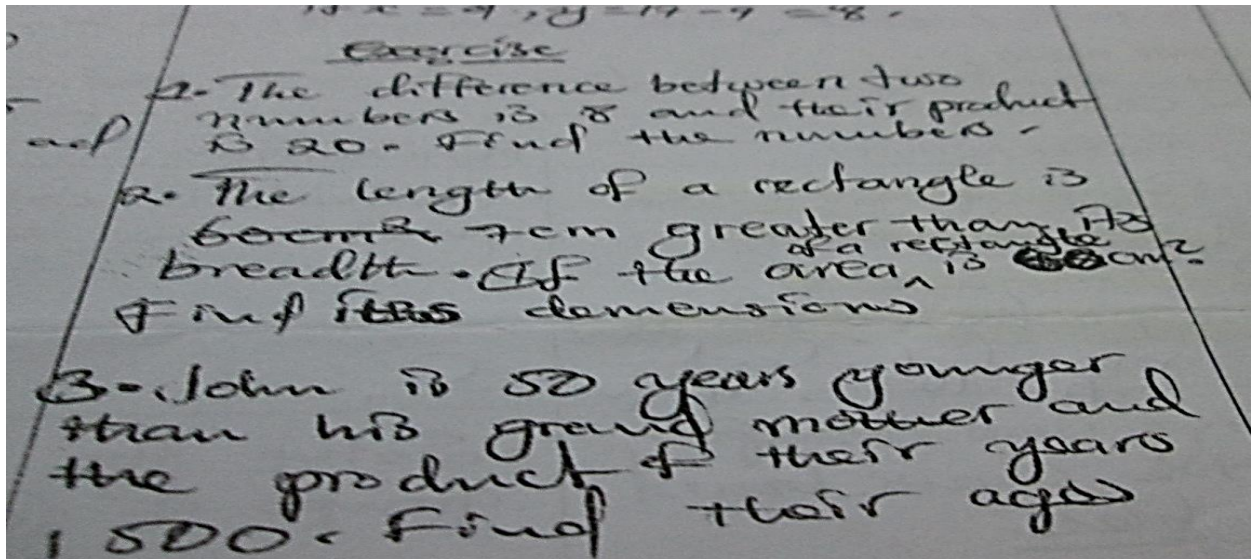 = 8.
Exercise
1. The difference between two
numbers is 8 and their product
is 20. Find the numbers.
2. The length of a rectangle is
7cm greater than its
breadth. If the area of a rectangle is cm².
Find its demensions
3. John is 50 years younger
than his grand mother and
the product of their years
1500. Find their ages